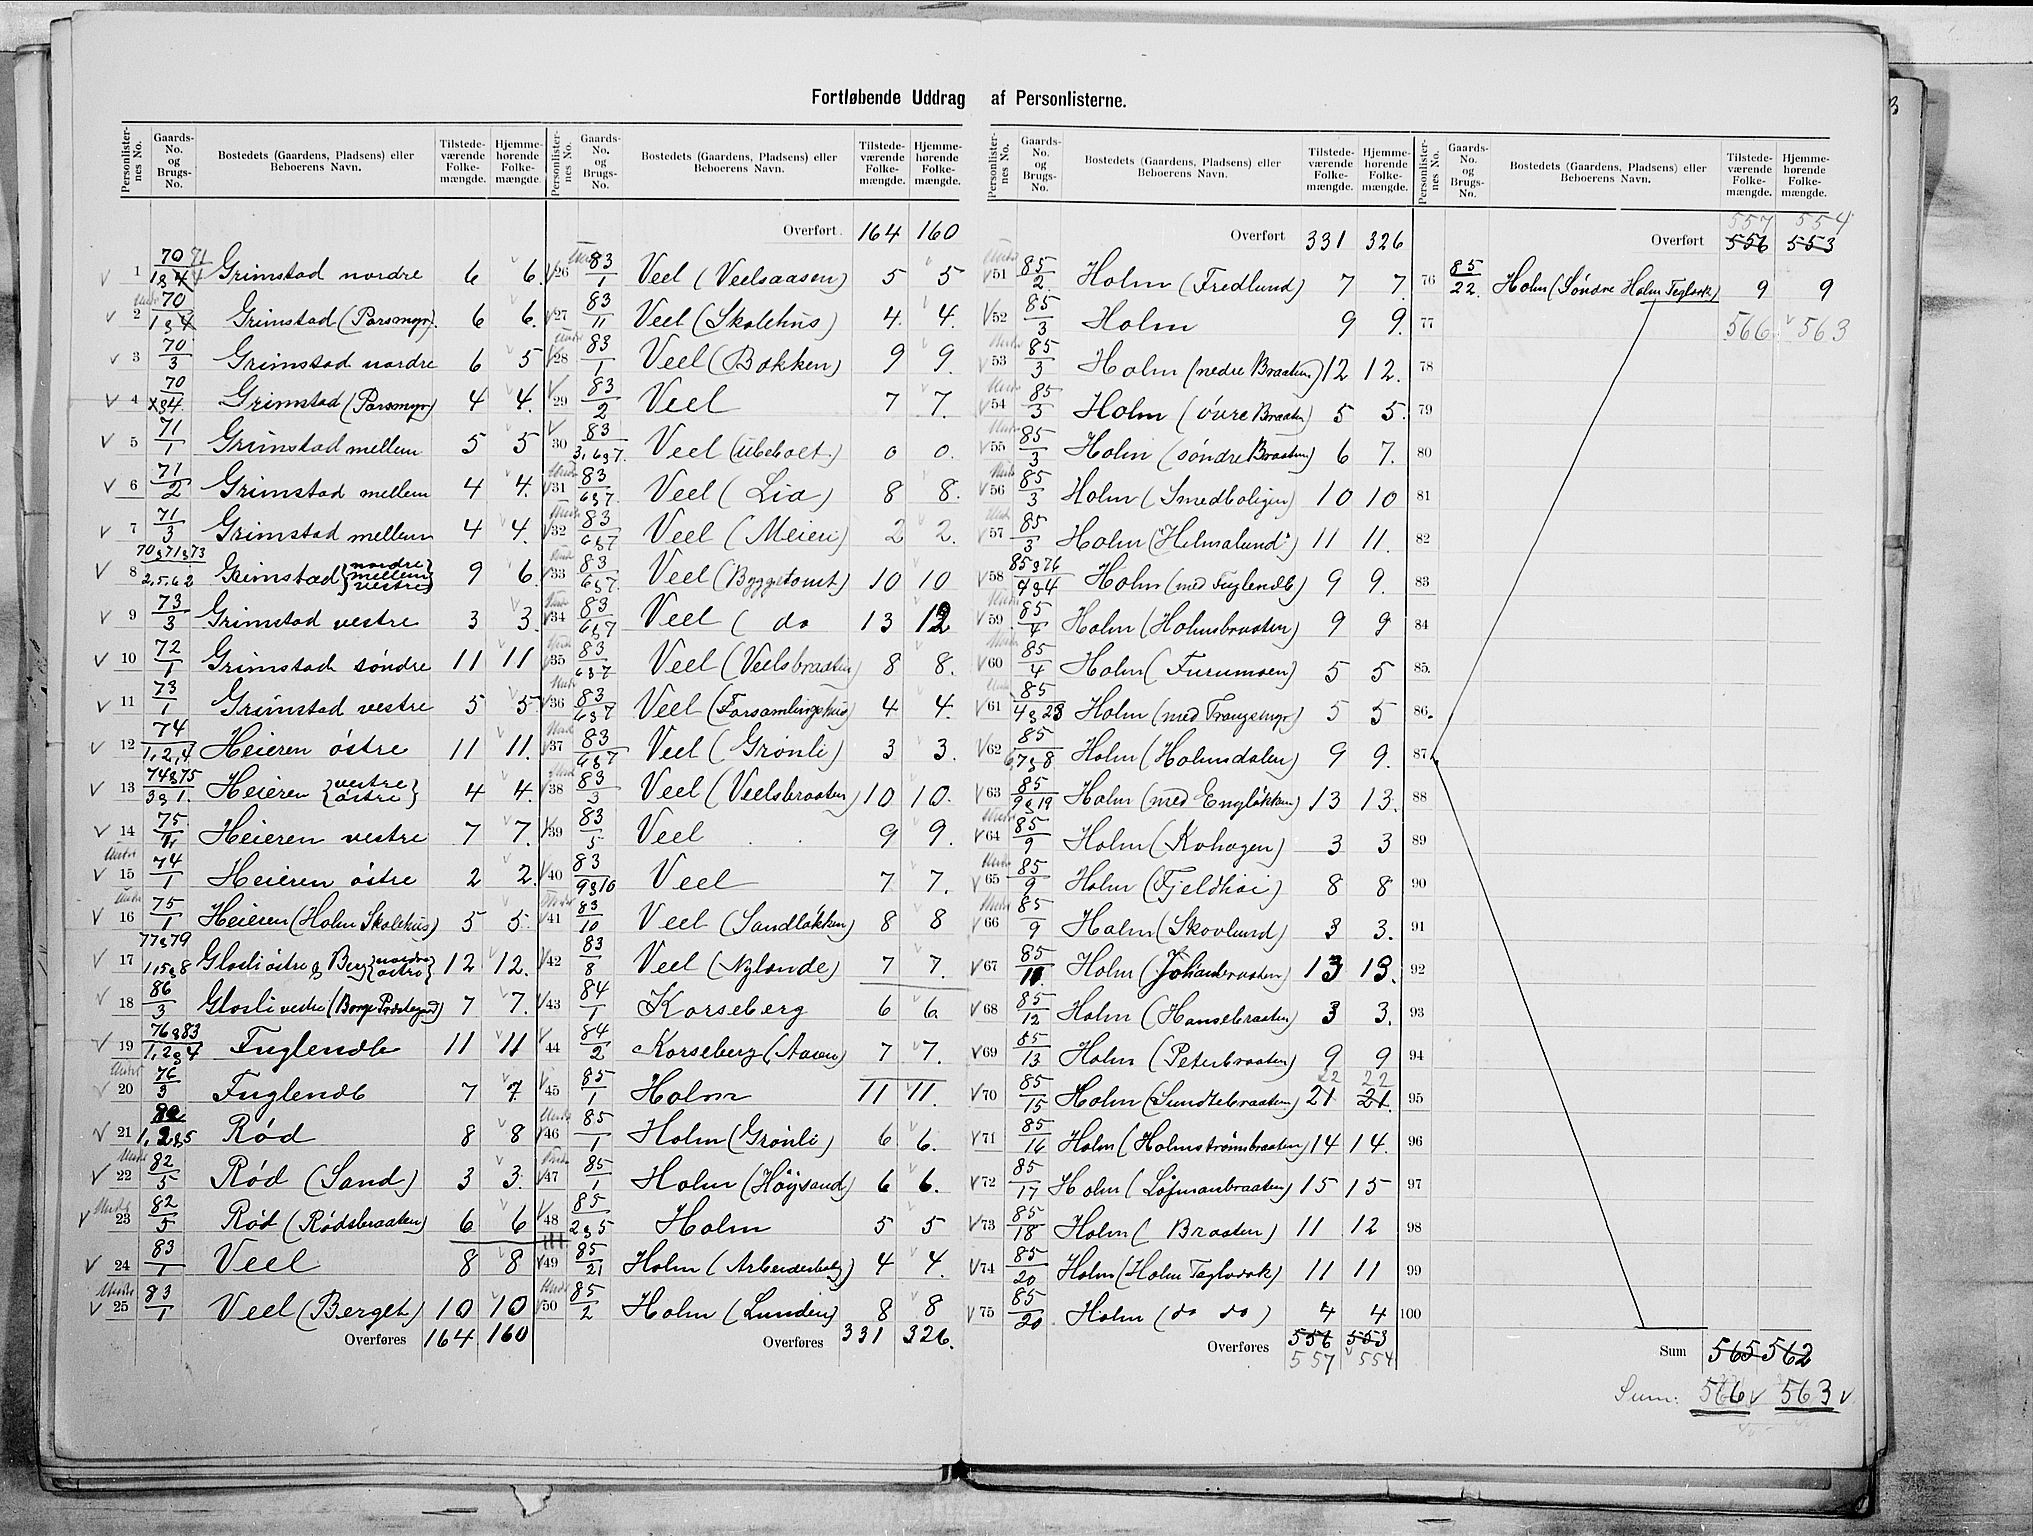 Fortløbende Uddrag af Personlisterne.
Personlister-nes No. Gaards-No. og Brugs-No. Bostedets (Gaardens, Pladsens) eller Beboerens Navn. Tilstede-værende Folke-mængde. Hjemme-hørende Folke-mængde.
1 70 71 / 1&4 Grimstad nordre 6 6.
2 70 / 1&4 Grimstad (Parsmyr). 6 6.
3 70/3 Grimstad nordre 6 5
4 70 / &4. Grimstad (Parsmyr) 4 4.
5 71/1 Grimstad mellem 5 5
6 71/2 Grimstad mellem 4 4.
7 71/3 Grimstad mellem 4 4.
8 70&71&73 / 2,5.6 2 Grimstad {nordre mellem vestre} 9 6.
9 73/3 Grimstad vestre 3 3.
10 72/1 Grimstad søndre 11 11
11 73/1 Grimstad vestre 5 5
12 74 / 1,2,4 Heieren østre 11 11.
13 74&75 / 3&1. Heieren {vestre østre} 4 4.
14 75 Heieren vestre 7 7.
15 74/1 Heieren østre 2 2.
16 75/1 Heieren (Holm Skolehus) 5 5.
17 77&79 / 1,5&8 Glosli østre & Berg {nordre østre} 12 12.
18 86/3 Glosli vestre (Borge Præstegaard) 7 7.
19 76&83 / 1,2&4 Fuglendb 11 11
20 76/3 Fuglendb 7 7
21 82 / 1,2&5 Rød 8 8
22 82/5 Rød (Sand) 3 3.
23 82/5 Rød (Rødsbraaten) 6 6
24 83/1 Veel 8 8
25 83/1 Veel (Berget) 10 10
Overføres 164 160
Personlister-nes No. Gaards-No. og Brugs-No. Bostedets (Gaardens, Pladsens) eller Beboerens Navn. Tilstede-værende Folke-mængde. Hjemme-hørende Folke-mængde.
Overført 164 160
26 83/1 Veel (Veelsaasen) 5 5
27 83/11 Veel (Skolehus) 4. 4.
28 83/1 Veel (Bakken) 9 9.
29 83/2 Veel 7 7.
30 83 / 3,6&7. Veel (ubeboet.) 0 0.
31 83 / 6&7. Veel (Lia) 8 8.
32 83 / 6&7 Veel (Meieri) 2 2.
33 83 / 6&7. Veel (Byggetomt) 10 10
34 83 / 6&7 Veel ( do 13 12
35 83 / 6&7 Veel (Veelsbraaten) 8 8.
36 83 / 6&7 Veel (Forsamlingshus) 4 4.
37 83 / 6&7 Veel (Grønli) 3 3.
38 83/3 Veel (Veelsbraaten) 10 10.
39 83/5 Veel 9 9.
40 83 / 9&10 Veel 7 7.
41 83/10 Veel (Sandløkken) 8 8
42 83/8 Veel (Nylende) 7 7.
43 84/1 Korseberg 6 6
44 84/2 Korseberg (Aasen) 7 7.
45 85/1 Holm 11 11.
46 85/1 Holm (Grønli) 6 6.
47 85/1 Holm (Høysand) 6 6.
48 85 / 2&5 Holm 5 5
49 85/21 Holm (Arbeiderbolig) 4 4.
50 85/2 Holm (Lunden) 8 8
Overføres 331 326.
Personlister-nes No. Gaards-No. og Brugs-No. Bostedets (Gaardens, Pladsens) eller Beboerens Navn. Tilstede-værende Folke-mængde. Hjemme-hørende Folke-mængde.
Overført 331 326
51 85/2. Holm (Fredlund) 7 7.
52 85/3 Holm 9 9.
53 85/3 Holm (nedre Braaten) 12 12.
54 85/3 Holm (øvre Braaten) 5 5.
55 85/3 Holm (søndre Braaten) 6 7.
56 85/3 Holm (Smedboligen) 10 10
57 85/3 Holm ("Helmalund") 11 11.
58 85&76 / 4&4 Holm (med Fuglendb) 9 9.
59 85/4 Holm (Holmsbraaten) 9 9
60 85/4 Holm (Furumoen) 5 5
61 85 / 4&23 Holm (med Trangsmyr) 5 5
62 85 / 6,7&8 Holm (Holmsdalen) 9 9.
63 85 / 9&19 Holm (med Engløkken) 13 13.
64 85/9 Holm (Kohagen) 3 3
65 85/9 Holm (Fjeldhøi) 8 8
66 85/9 Holm (Skovlund) 3 3.
67 85/11. Holm (Johanbraaten) 13 13.
68 85/12 Holm (Hansebraaten) 3 3.
69 85/13 Holm (Peterbraaten) 9 9
22 22
70 85/15 Holm (Sundtebraaten) 21 21.
71 85/16 Holm (Holmstrømbraaten) 14 14.
72 85/17 Holm (Løfmanbraaten) 15 15
73 85/18 Holm ( Braaten) 11 12
74 85/20 Holm (Holm Teglværk) 11 11
75 85/20 Holm (do do) 4 4
Overføres 556 553
557 554
Personlister-nes No. Gaards-No. og Brugs-No. Bostedets (Gaardens, Pladsens) eller Beboerens Navn. Tilstede-værende Folke-mængde. Hjemme-hørende Folke-mængde.
557 554
Overført 556 553
76 85/22. Holm (Søndre Holm Teglværk) 9 9
77 566 563
78
79
80
81
82
83
84
85.
86.
87
88
89
90
91
92
93
94
95
96
97
98
99
100
Sum 565 562
Sum: 566 563